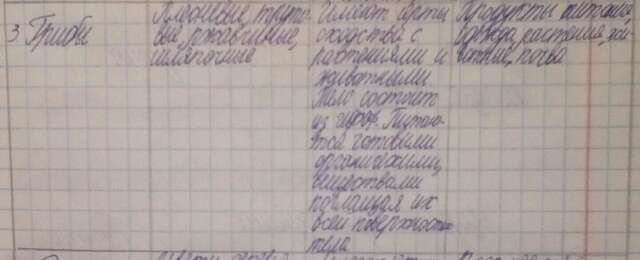 3. Грибы
Плесневые, труто-
вые, ржавчинные,
шляпочные
Имеют черты
сходства с
растениями и
животными.
Тело состоит
из гифов. Питаю-
тся готовыми
органическими
веществами
поглащая их
всей поверхностью
тела
Продукты питания,
одежда, растения, жи-
вотные, почва